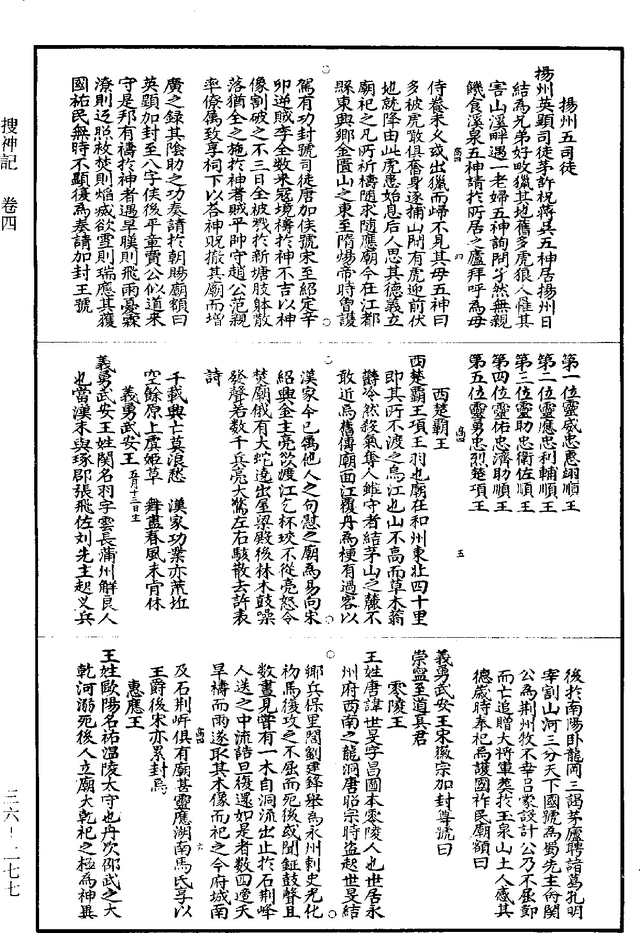 搜神記 卷四
揚州五司徒
揚州英顯司徒茅許祝蔣吳五神居揚州日
結為兄弟好畋獵其地舊多虎狼人罹其
害山溪畔遇一老婦五神詢問孑然無親
饑食溪泉五神請於所居之廬拜呼為母
侍養未久或出獵而歸不見其母五神曰
多被虎啖俱奮身逐捕山間有虎迎前伏
地就降由此虎患始息后人思其德義立
廟祀之凡所祈禱隨求隨應廟今在江都
縣東興鄉金匱山之東至隋煬帝時曾護
駕有功封號司徒唐加侯號宋至紹定辛
卯逆賊李全數來寇境禱於神不吉以神
像割破之不三日全被戮於新塘肢躰散
落猶全之施於神者賊平帥守趙公范親
率僚属致享祠下以各神貺撤其廟而增
廣之録其陰助之功奏請於朝賜廟額曰
英顯加封至八字侯後平章賈公似道來
守是邦有禱於神者遇旱暵則飛雨憂霖
潦則返照救焚則焰滅欲雪則瑞應其護
國祐民無時不顯復為奏請加封王號
第一位靈威忠惠翊順王
第二位靈應忠利輔順王
第三位靈助忠衛佐順王
第四位靈佑忠濟助順王
第五位靈勇忠烈楚項王
西楚霸王
西楚霸王項王羽也廟在和州東北四十里
即其所不渡之烏江也山不高而草木蓊
欝冷然殺氣奪人雖守者結茅山之麓不
敢近焉舊傳廟面江覆舟為梗有過客以
漢家今已属他人之句慰之廟為易向宋
紹興金主亮欲渡江乞杯珓不從亮怒令
焚廟俄有大蛇遶出屋梁殿後林木鼓噪
發聲若數千兵亮大驚左右駭散去許表
詩
千載興亡莫浪愁 漢家功業亦荒坵
空餘原上虞姬草 舞盡春風未肯休
義勇武安王 五月十三日生
義勇武安王姓関名羽字雲長蒲州解良人
也當漢末與琢郡張飛佐刘先主起义兵
後於南陽卧龍岡三謁茅廬聘諸葛孔明
宰割山河三分天下國號為蜀先主命関
公為荊州牧不幸呂蒙設計公乃不屈節
而亡追贈大將軍葬於玉泉山土人感其
德歲時奉祀焉護國祚民廟額曰
義勇武安王宋徽宗加封尊號曰
崇寧至道真君
零陵王
王姓唐諱世旻字昌圖本零陵人也世居永
州府西南之龍洞唐昭宗時盗起世旻結
鄉兵保里閭劉建鋒舉為永州刺史光化
初馬殷攻之不屈而死後或聞鉦鼓聲且
數晝見嘗有一木自洞流出止於石荆峰
人送之中流詰旦復還如是者數四適天
旱禱而雨遂取其木像而祀之今府城南
及石荆岭俱有廟甚靈應湖南馬氏孚以
王爵後宋亦累封焉
惠應王
王姓歐陽名祐温陵太守也丹次邵武之大
乾河溺死後人立廟大乾祀之極為神異
三六-二七七